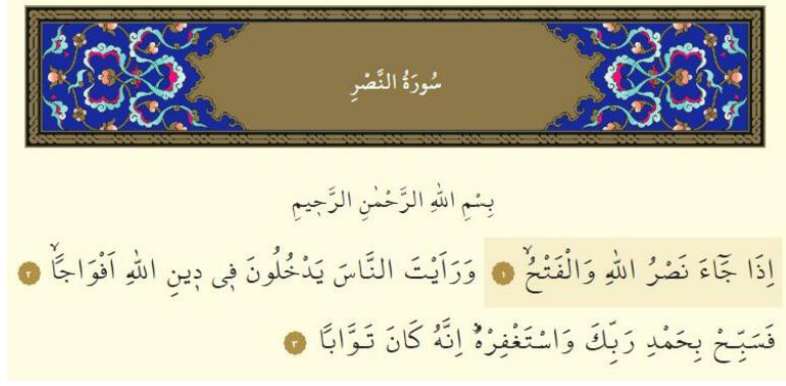 سُورَةُ النَّصْرِ
بِسْمِ اللّٰهِ الرَّحْمٰنِ الرَّحٖيمِ
اِذَا جَٓاءَ نَصْرُ اللّٰهِ وَالْفَتْحُۙ ١ وَرَاَيْتَ النَّاسَ يَدْخُلُونَ فٖى دٖينِ اللّٰهِ اَفْوَاجًاۙ ٢
فَسَبِّحْ بِحَمْدِ رَبِّكَ وَاسْتَغْفِرْهُؕ اِنَّهُ كَانَ تَوَّابًا ٣